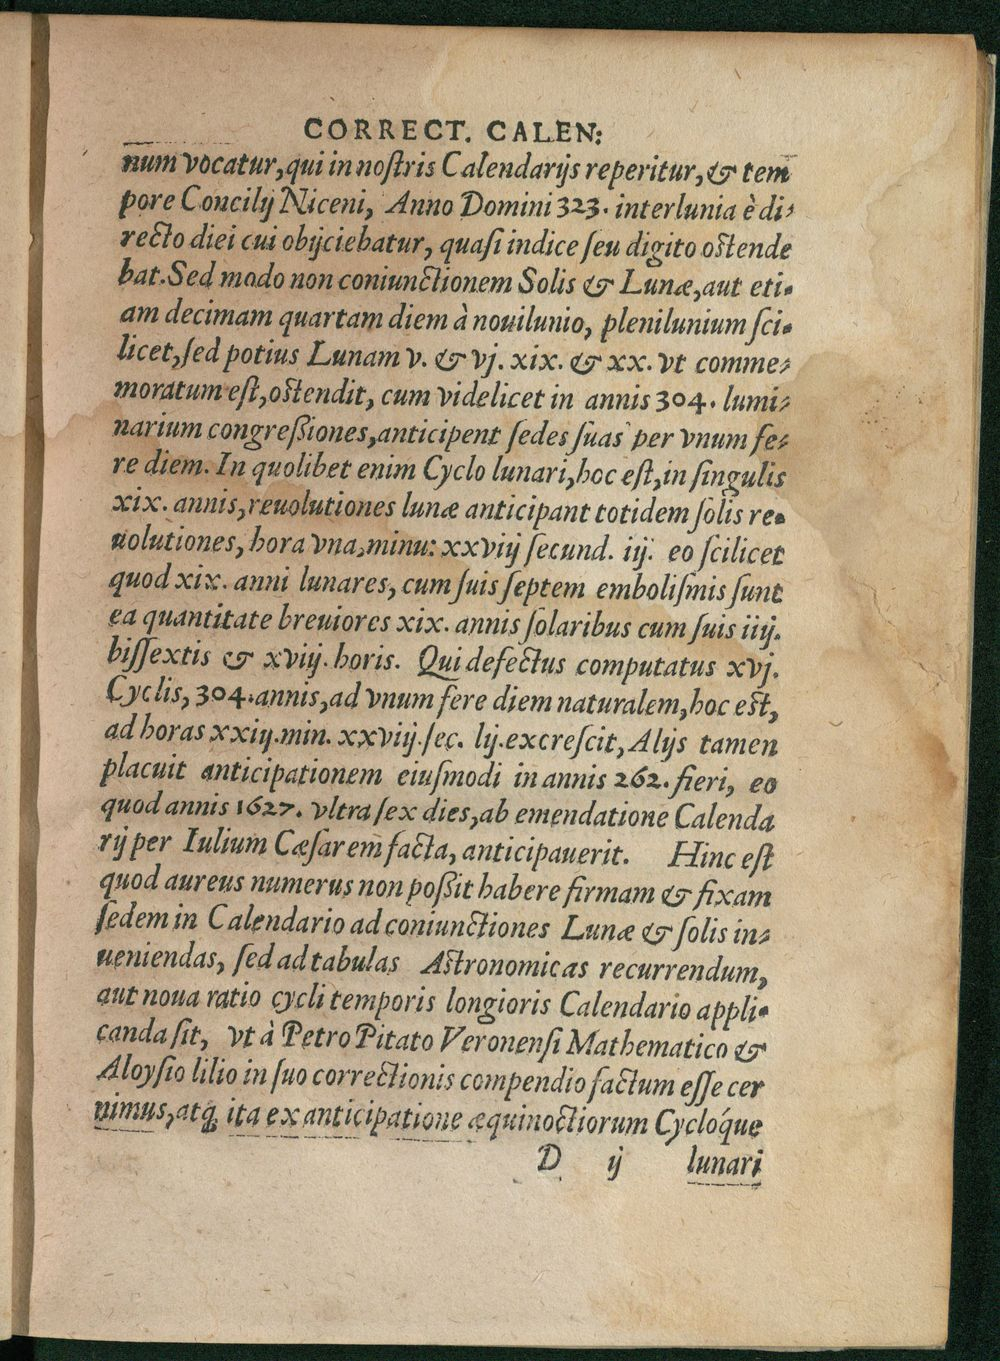 CORRECT. CALEN:
num vocatur, qui in noſtris Calendarijs reperitur, & tem
pore Concilij Niceni, Anno Domini 323. interlunia è di-
recto diei cui obijciebatur, quaſi indice ſeu digito oſtende
bat. Sed modo non coniunctionem Solis & Lunæ, aut eti-
am decimam quartam diem à nouilunio, plenilunium ſci-
licet, ſed potius Lunam v. & vj. xix. & xx. vt comme-
moratum eſt, oſtendit, cum videlicet in annis 304. lumi-
narium congreßiones, anticipent ſedes ſuas per vnum fe-
re diem. In quolibet enim Cyclo lunari, hoc eſt, in ſingulis
xix. annis, reuolutiones lunæ anticipant totidem ſolis re-
uolutiones, hora vna, minu: xxviij ſecund. iij. eo ſcilicet
quod xix. anni lunares, cum ſuis ſeptem emboliſmis ſunt
ea quantitate breuiores xix. annis ſolaribus cum ſuis iiij.
biſſextis & xviij. horis. Qui defectus computatus xvj.
Cyclis, 304. annis, ad vnum fere diem naturalem, hoc eſt,
ad horas xxiij. min. xxviij. ſec. lij. excreſcit, Alijs tamen
placuit anticipationem eiuſmodi in annis 262. fieri, eo
quod annis 1627. vltra ſex dies, ab emendatione Calenda
rij per Iulium Cæſarem facta, anticipauerit. Hinc eſt
quod aureus numerus non poßit habere firmam & fixam
ſedem in Calendario ad coniunctiones Lunæ & ſolis in-
ueniendas, ſed ad tabulas Aſtronomicas recurrendum,
aut noua ratio cycli temporis longioris Calendario appli-
canda ſit, vt à Petro Pitato Veronenſi Mathematico &
Aloyſio lilio in ſuo correctionis compendio factum eſſe cer
nimus, atq; ita ex anticipatione æquinoctiorum Cyclóque
D ij lunari